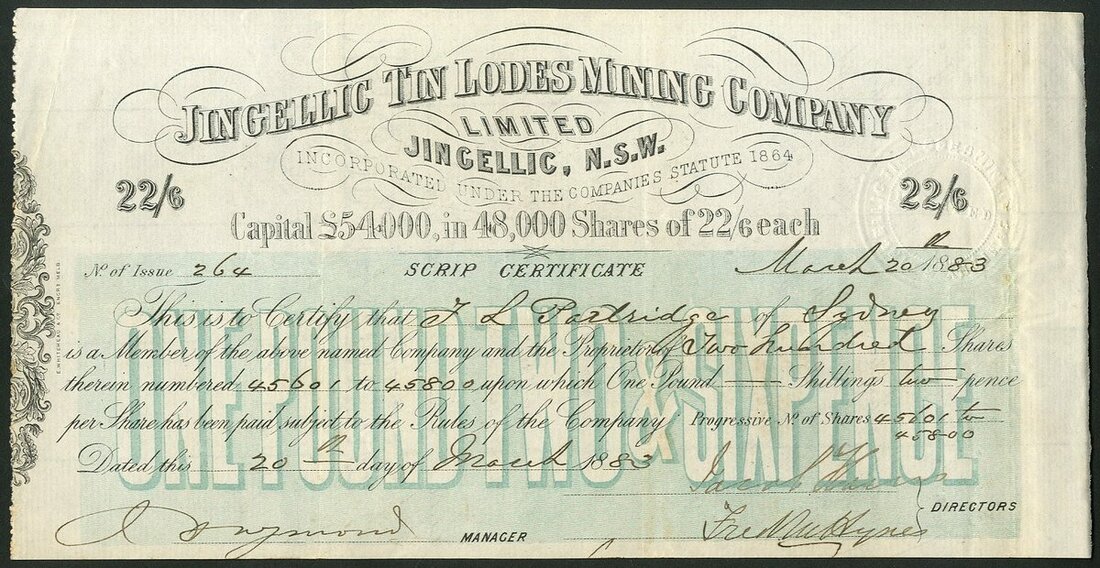 JINGELLIC TIN LODES MINING COMPANY
LIMITED
JINGELLIC, N.S.W.
INCORPORATED UNDER THE COMPANIES STATUTE 1864
22/6 22/6
Capital £54,000, in 48,000 Shares of 22/6 each
No of Issue 264 SCRIP CERTIFICATE March 20th 1883
This is to Certify that F L Partridge of Sydney
is a Member of the above named Company and the Proprietor of Two hundred Shares
therein numbered 45601 to 45800 upon which One Pound — Shillings two pence
per Share has been paid subject to the Rules of the Company Progressive No of Shares 45601 to
45800
Dated this 20th day of March 1883
ONE POUND TWO & SIXPENCE
Jacob
DIRECTORS
MANAGER